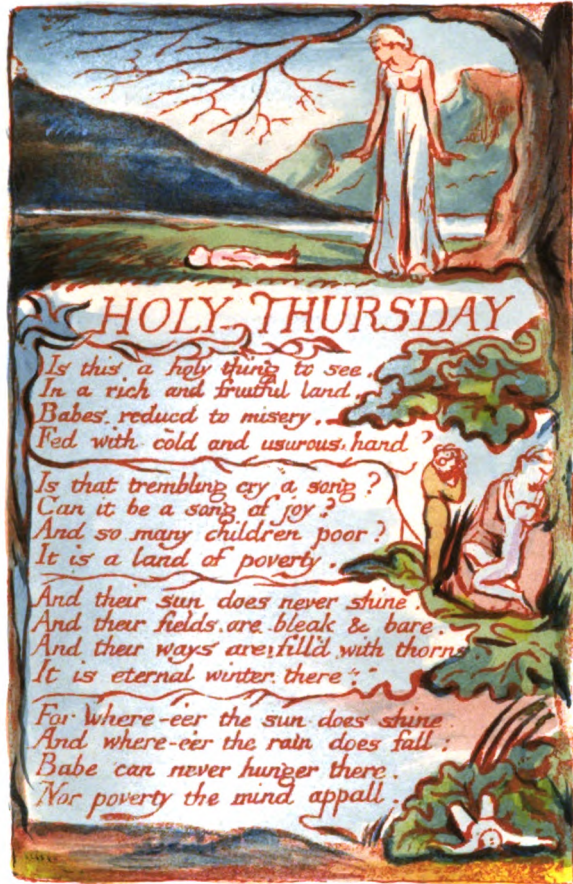 HOLY THURSDAY
Is this a holy thing to see.
In a rich and fruitful land.
Babes reducd to misery.
Fed with cold and usurous hand?
Is that trembling cry a song?
Can it be a song of joy?
And so many children poor?
It is a land of poverty.
And their sun does never shine.
And their fields are bleak & bare.
And their ways are fill'd with thorns
It is eternal winter there.
For where-e'er the sun does shine.
And where-e'er the rain does fall:
Babe can never hunger there.
Nor poverty the mind appall.